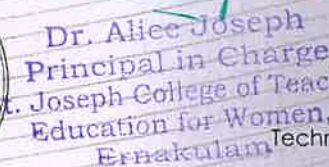 Dr. Alice Joseph
Principal in Charge
t. Joseph College of Teac
Education for Women,
Ernakulam
Techn